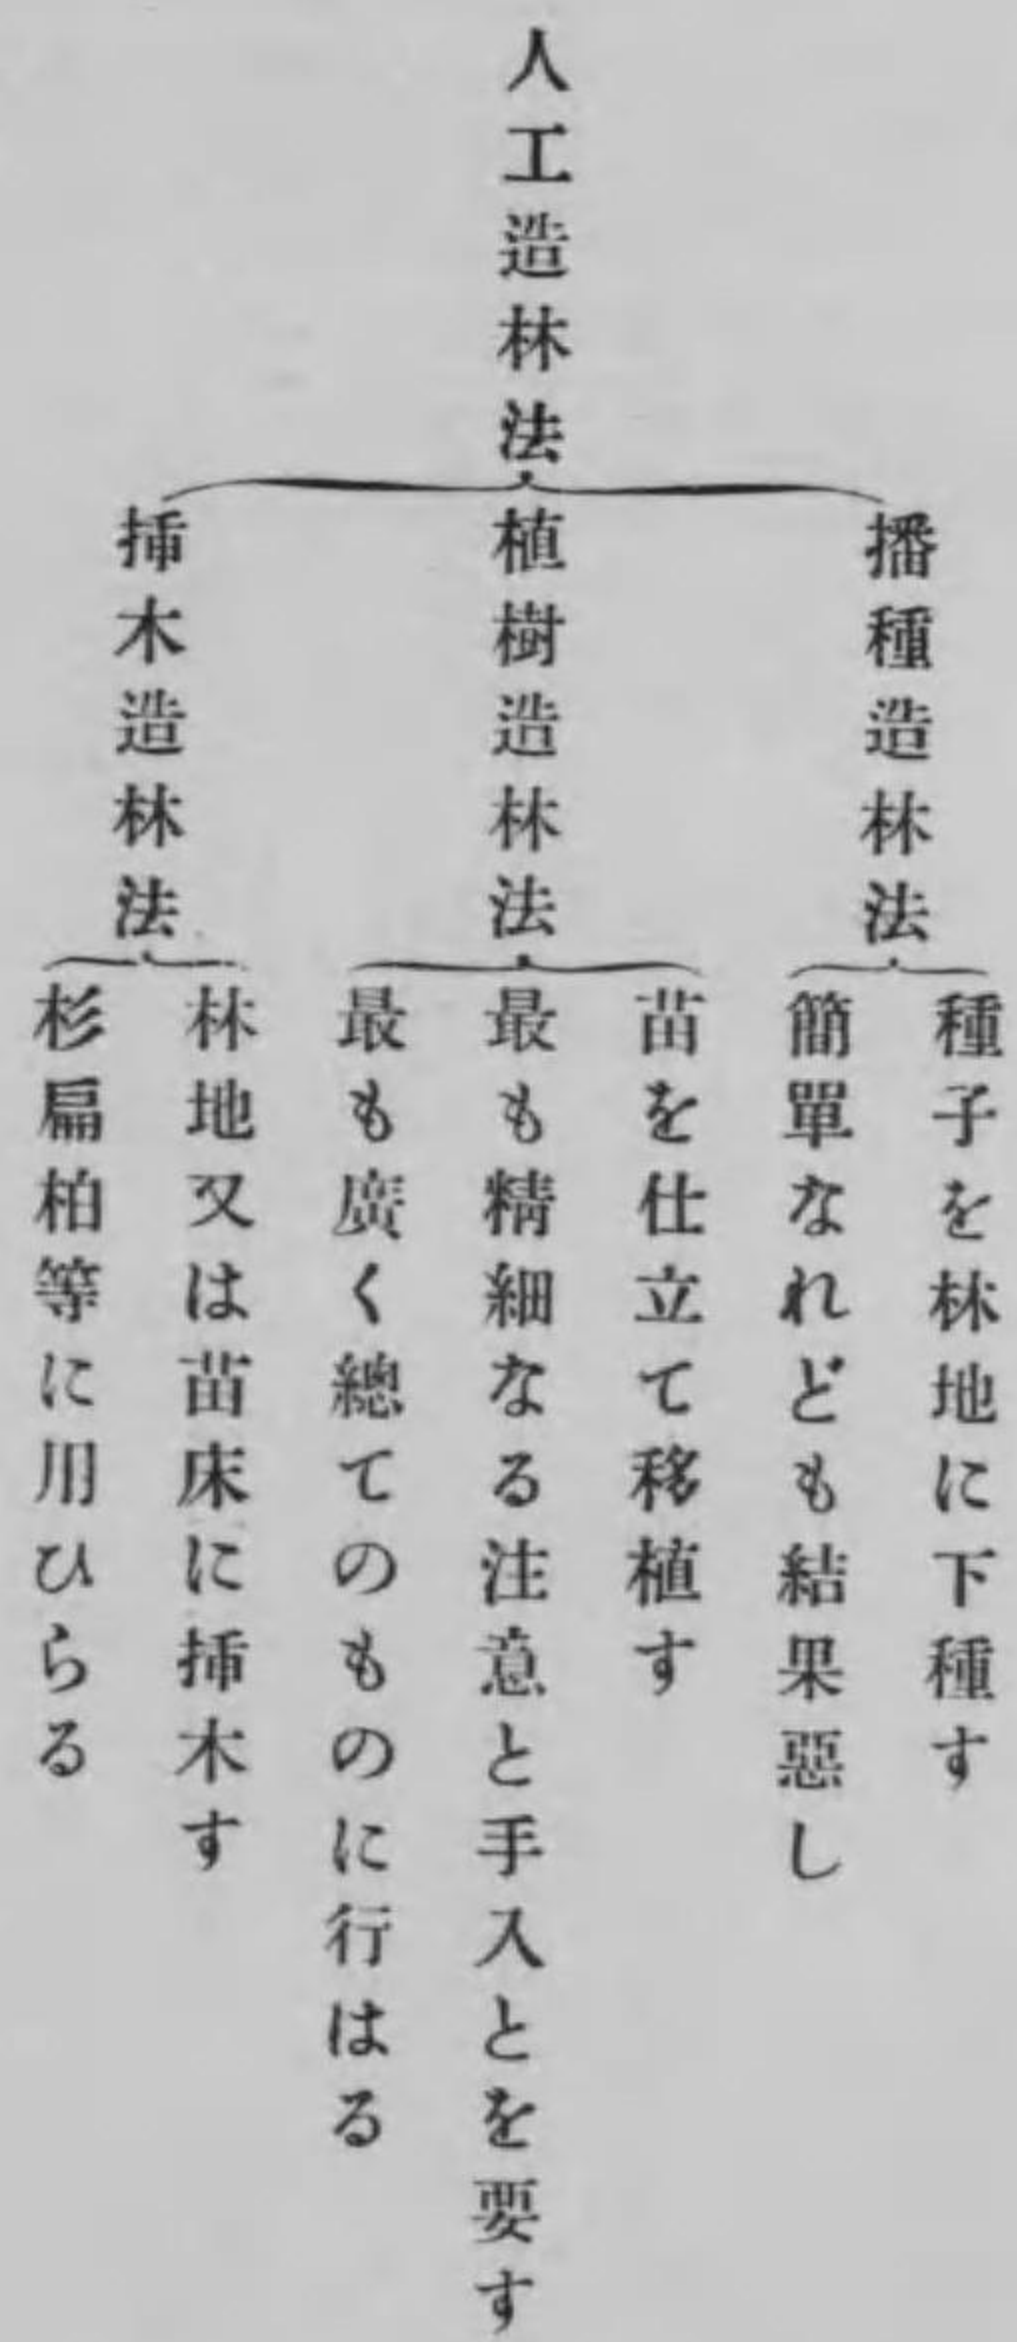 人工造林法
播種造林法
種子を林地に下種す
簡單なれども結果惡し
植樹造林法
苗を仕立て移植す
最も精細なる注意と手入とを要す
最も廣く總てのものに行はる
揷木造林法
林地又は苗床に揷木す
杉扁柏等に用ひらる